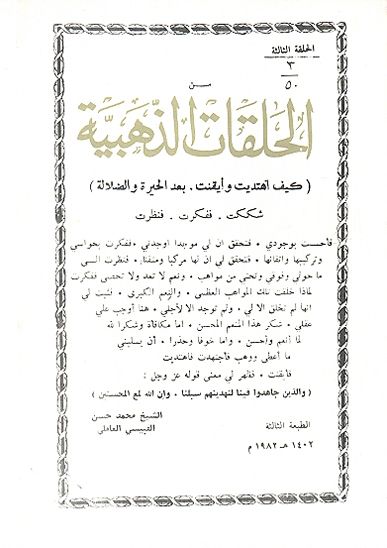 الحلقة الثالثة
٣
٥٠
من
الحلقات الذهبية
( كيف اهتديت وأيقنت ، بعد الحيرة والضلالة )
شككت . ففكرت . فنظرت
فأحست بوجودي ، فتحقق ان لي موجدا اوجدني ، ففكرت بحواسي
وتركيبها واتقانها ، فتحقق لي ان لها مركبا ومتقنا . فنظرت الى
ما حولي وفوقي وتحتي من مواهب ، ونعم لا تعد ولا تحصى ففكرت
لماذا خلقت تلك المواهب العظمى ، والنعم الكبرى ، فثبت لي
انها لم تخلق الا لي ، ولم توجد الا لأجلي ، هنا أوجب علي
عقلي ، شكر هذا المنعم المحسن ، اما مكافاة وشكرا لله
لما أنعم وأحسن ، واما خوفا وحذرا ، أن يسلبني
ما أعطى ووهب فاجتهدت فاهتديت
فأيقنت ، فظهر لي معنى قوله عز وجل :
( والذين جاهدوا فينا لنهدينهم سبلنا ، وان الله لمع المحسنين )
الشيخ محمد حسن
القبيسي العاملي
الطبعة الثالثة
١٤٠٢ هـ ١٩٨٢ م